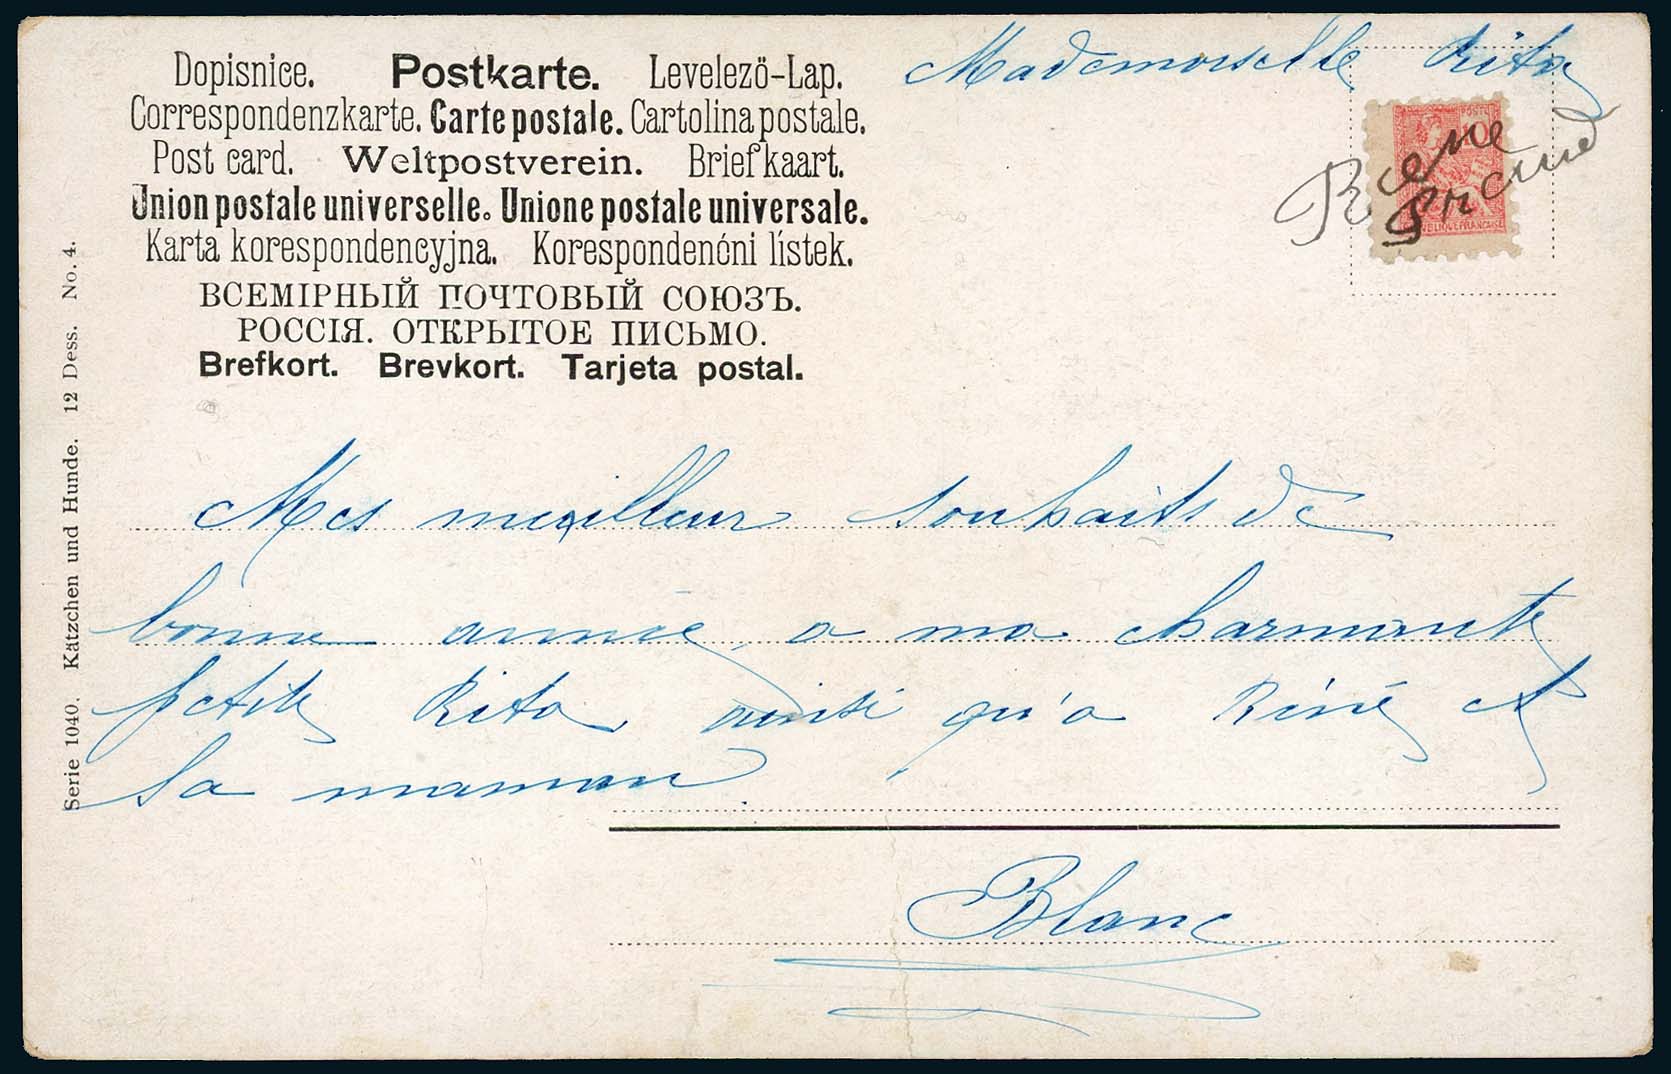 Dopisnice. Postkarte. Levelezö-Lap.
Correspondenzkarte. Carte postale. Cartolina postale.
Post card. Weltpostverein. Briefkaart.
Union postale universelle. Unione postale universale.
Karta korespondencyjna. Korespondenćni lístek.
ВСЕМІРНЫЙ ПОЧТОВЫЙ СОЮЗЪ.
РОССІЯ. ОТКРЫТОЕ ПИСЬМО.
Brefkort. Brevkort. Tarjeta postal.
Serie 1040. Kätzchen und Hunde. 12 Dess. No. 4.
Mademoiselle Rita
POSTE
10
Rene
RÉPUBLIQUE FRANÇAISE
Mes meilleur souhaits de
bonne année a ma charmante
petite Rita ainsi qu'a Réné et
sa maman.
Blanc